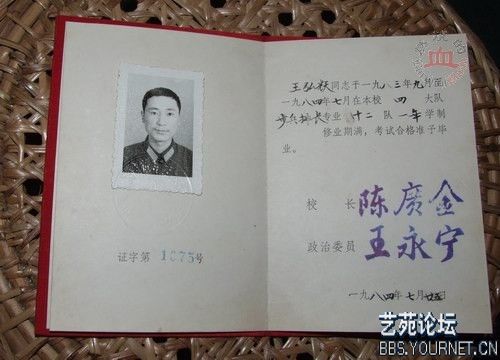 证字第 1075号
王弘毅同志于一九八三年九月至
一九八四年七月在本校 四 大队
步兵排长专业 十二 队 一年 学制
修业期满，考试合格准予毕
业。
校 长 陈廣金
政治委员 王永宁
一九八四年七月
艺苑论坛
BBS.YOURNET.CN